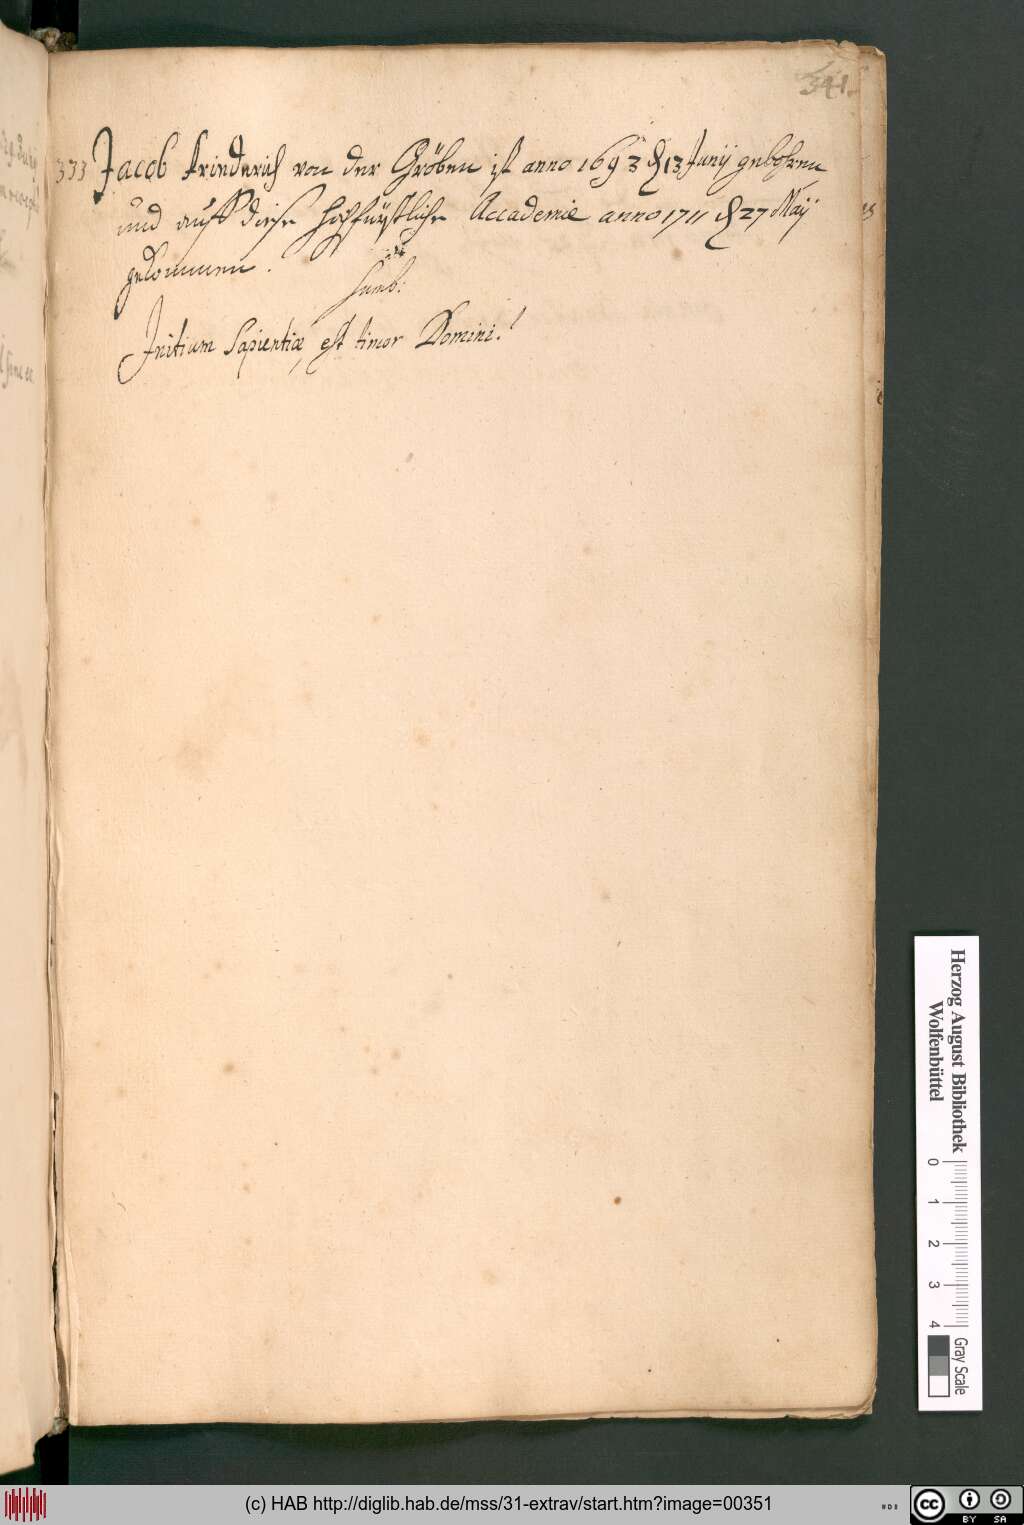 341.
333 Jacob Friederich von der Gröben ist anno 1693 d 13 Junij gebohren
und auff diese hochfürstliche Accademie anno 1711 d 27 Maij
gekommen.
Symb:
Initium Sapientiæ, est timor Domini!
Herzog August Bibliothek
Wolfenbüttel
0 1 2 3 4
Gray Scale
(c) HAB http://diglib.hab.de/mss/31-extrav/start.htm?image=00351
WDB
cc
BY SA